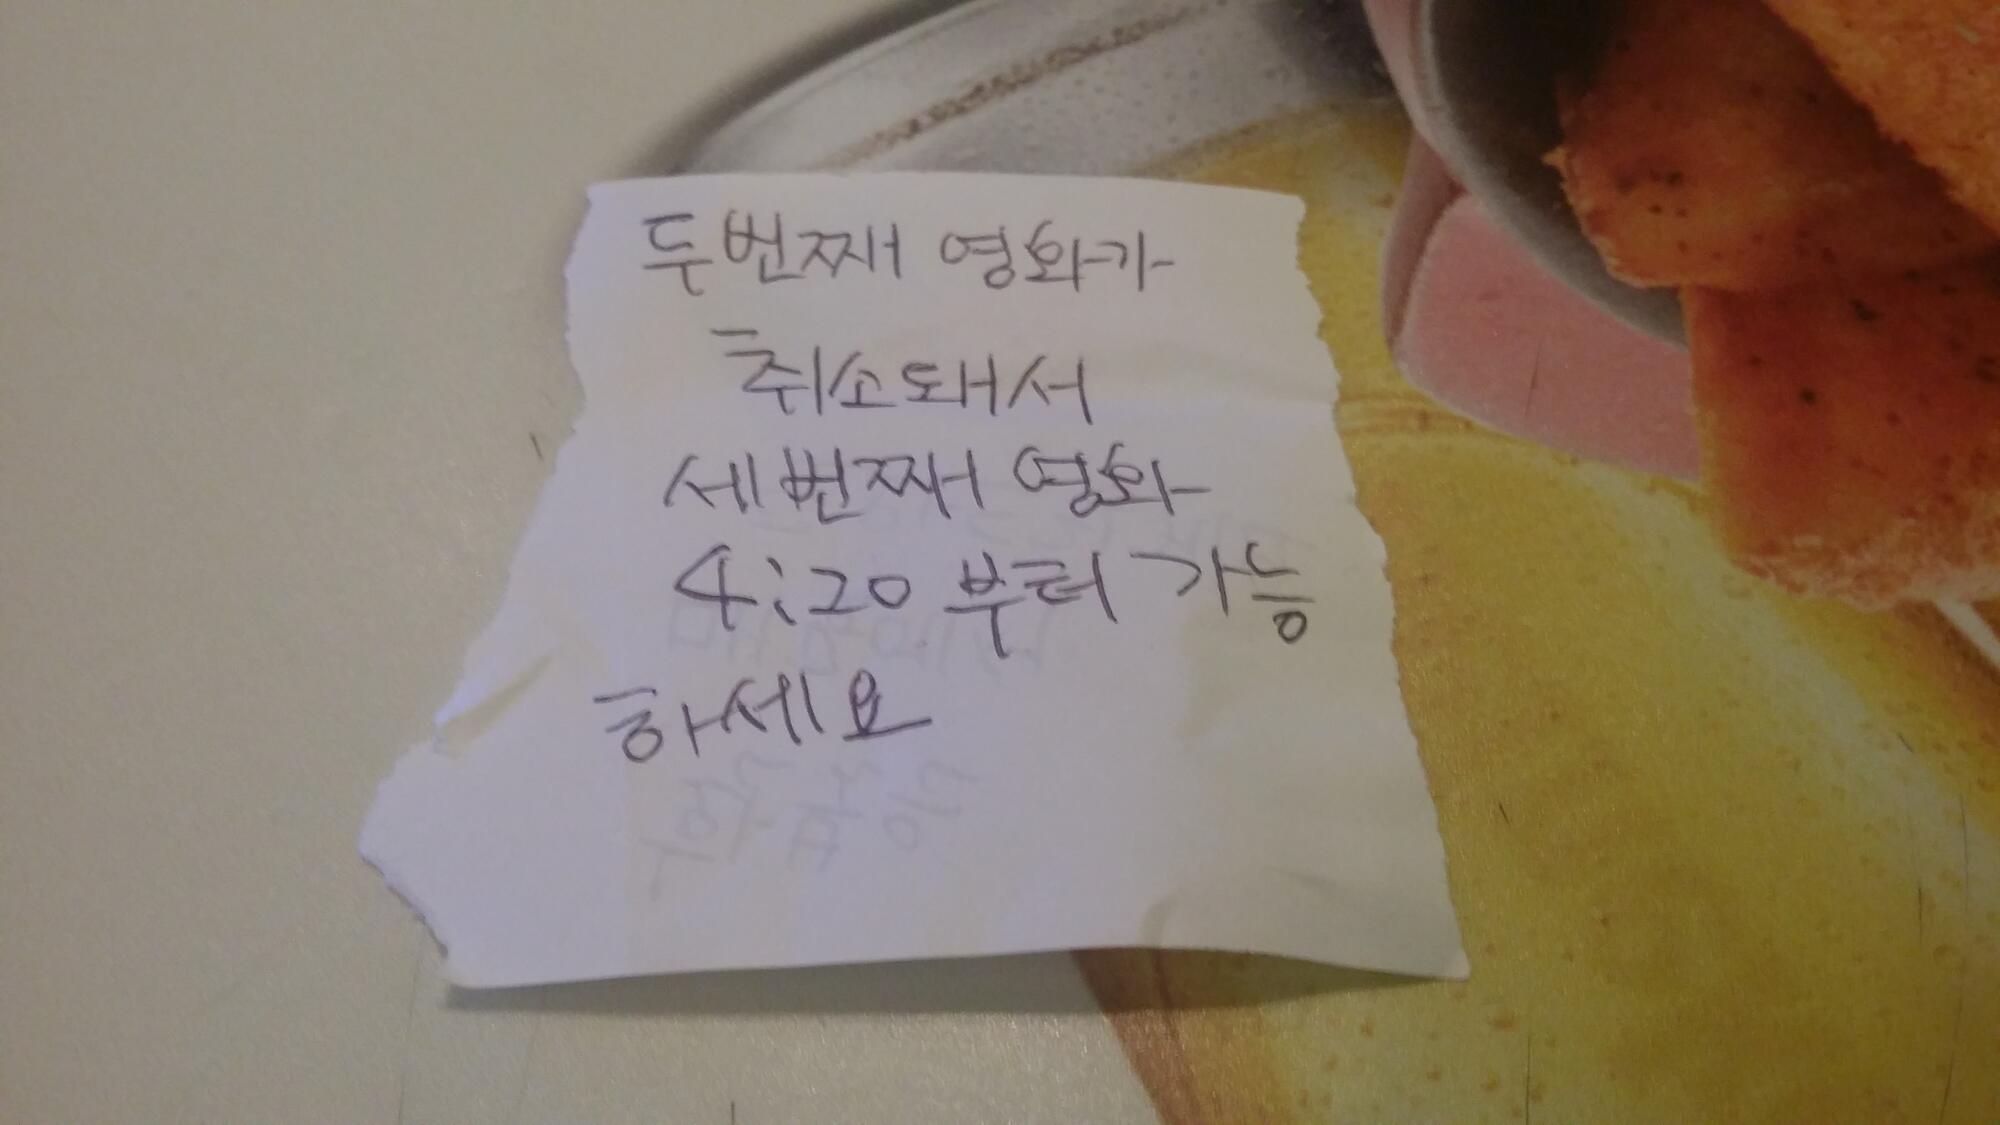 두번째 영화가
취소돼서
세번째 영화
4:20 부터 가능
하세요